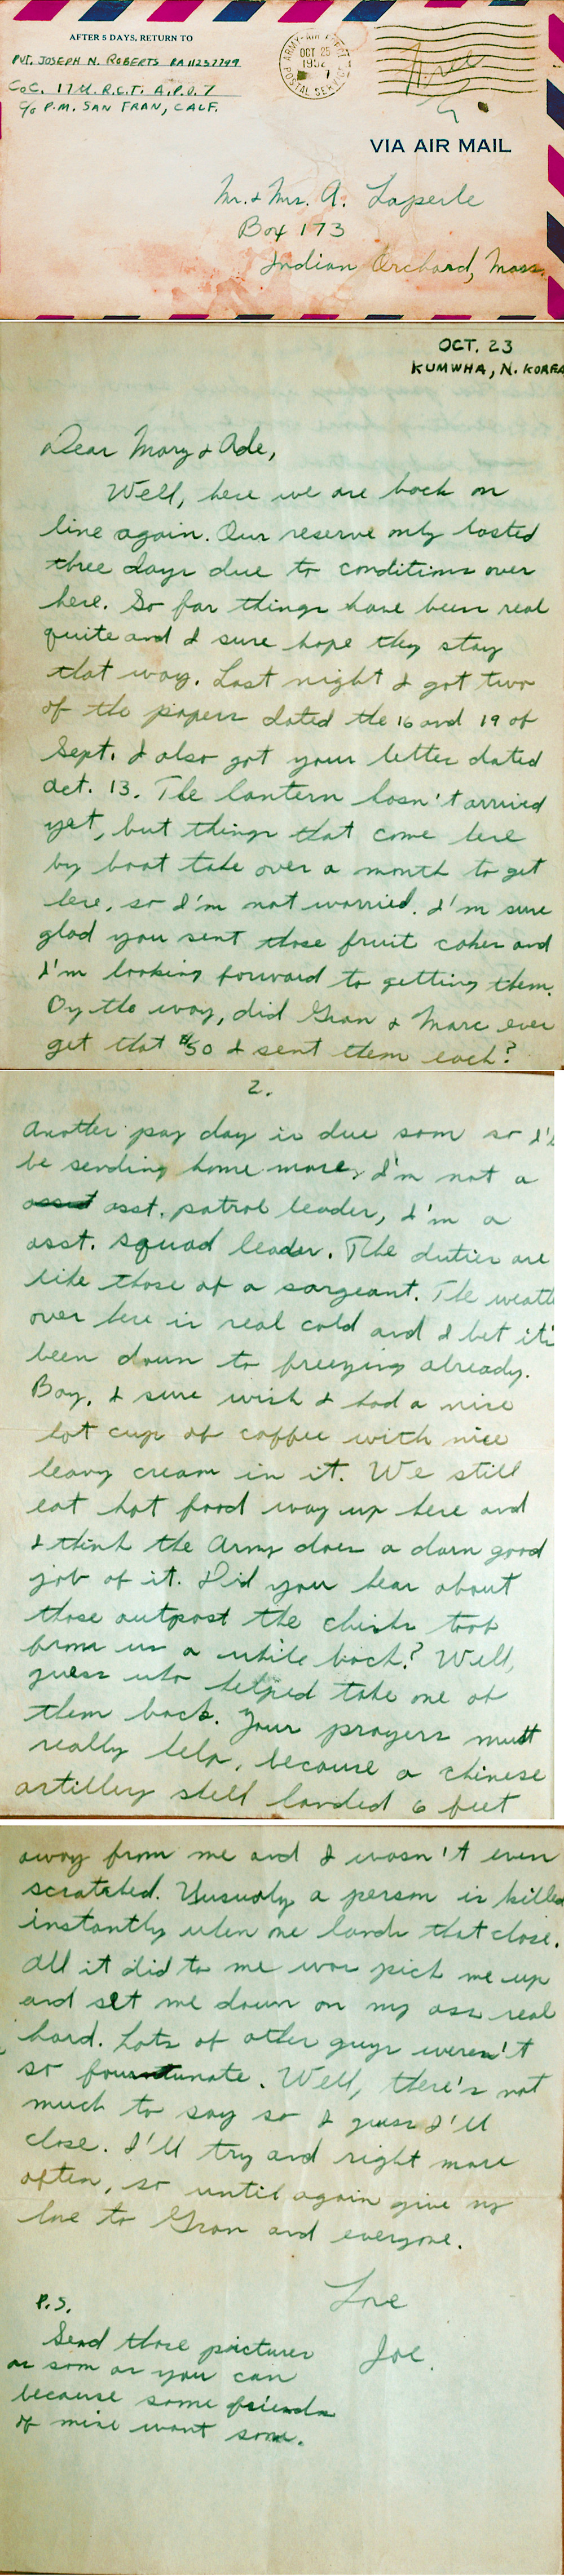 AFTER 5 DAYS, RETURN TO
PVT. JOSEPH N. ROBERTS RA11237799
Co C. 17th R.C.T. A.P.O. 7
c/o P.M. SAN FRAN, CALF.
ARMY-AIR FORCE
OCT 25
1952
7
POSTAL SERVICE
Free
VIA AIR MAIL
Mr. & Mrs. A. Laperle
Box 173
Indian Orchard, Mass.
OCT. 23
KUMWHA, N. KOREA
Dear Mary & Ade,
Well, here we are back on
line again. Our reserve only lasted
three days due to conditions over
here. So far things have been real
quite and I sure hope they stay
that way. Last night I got two
of the papers dated the 16 and 19 of
Sept. I also got your letter dated
Oct. 13. The lantern hasn't arrived
yet, but things that come here
by boat take over a month to get
here, so I'm not worried. I'm sure
glad you sent those fruit cakes and
I'm looking forward to getting them.
By the way, did Gran & Marc ever
get that $50 I sent them each?
2.
Another pay day is due soon so I'll
be sending home more. I'm not a
asst. patrol leader, I'm a
asst. squad leader. The duties are
like those of a sargeant. The weath
over here is real cold and I bet it's
been down to freezing already.
Boy, I sure wish I had a nice
hot cup of coffee with nice
heavy cream in it. We still
eat hot food way up here and
I think the Army does a darn good
job of it. Did you hear about
those outpost the chinks took
from us a while back? Well,
guess who helped take one of
them back. Your prayers must
really help, because a chinese
artillery shell landed 6 feet
away from me and I wasn't even
scratched. Yusualy a person is killed
instantly when one lands that close.
All it did to me was pick me up
and set me down on my ass real
hard. Lots of other guys weren't
so fourtunate. Well, there's not
much to say so I guess I'll
close. I'll try and right more
often, so until again give my
love to Gran and everyone.
Love
Joe.
P.S.
Send those pictures
as soon as you can
because some friends
of mine want some.